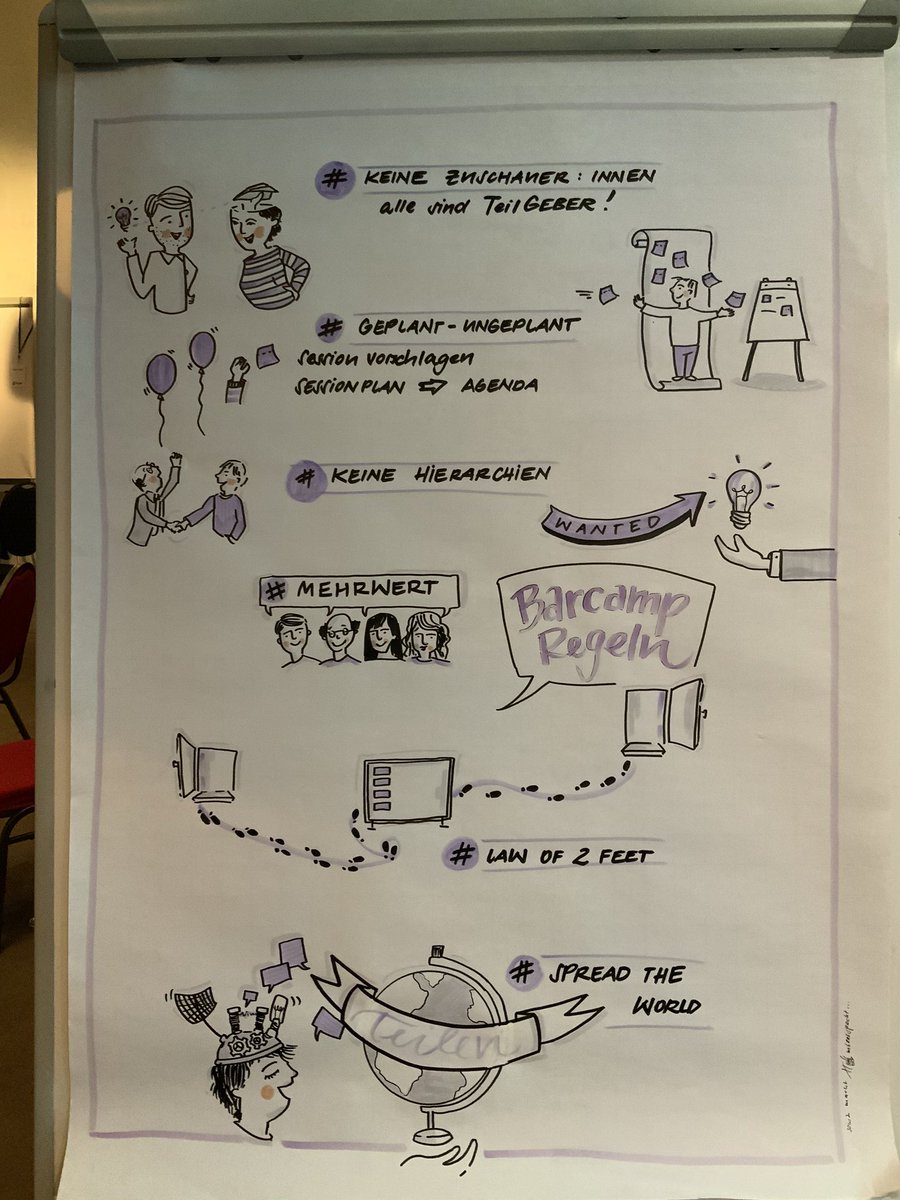 # KEINE ZUSCHAUER:INNEN
alle sind TeilGEBER!
# GEPLANT-UNGEPLANT
session vorschlagen
SESSIONPLAN ⇨ AGENDA
# KEINE HIERARCHIEN
WANTED
# MEHRWERT
Barcamp
Regeln
# LAW OF 2 FEET
# SPREAD THE
WORLD
teilen